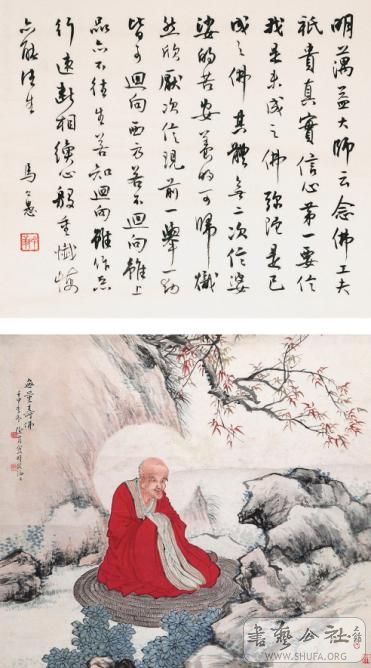 明蕅益大師云念佛工夫
祇貴真實信心第一要信
我是未成之佛彌陀是已
成之佛其體無二次信娑
婆的苦安養的可歸熾
然欣厭次信現前一舉一動
皆可迴向西方若不迴向雖上
品亦不往生若知迴向雖作惡
行速斷相續心殷重懺悔
亦能往生
馬公愚
無量壽佛
書藝公社
WWW.SHUFA.ORG